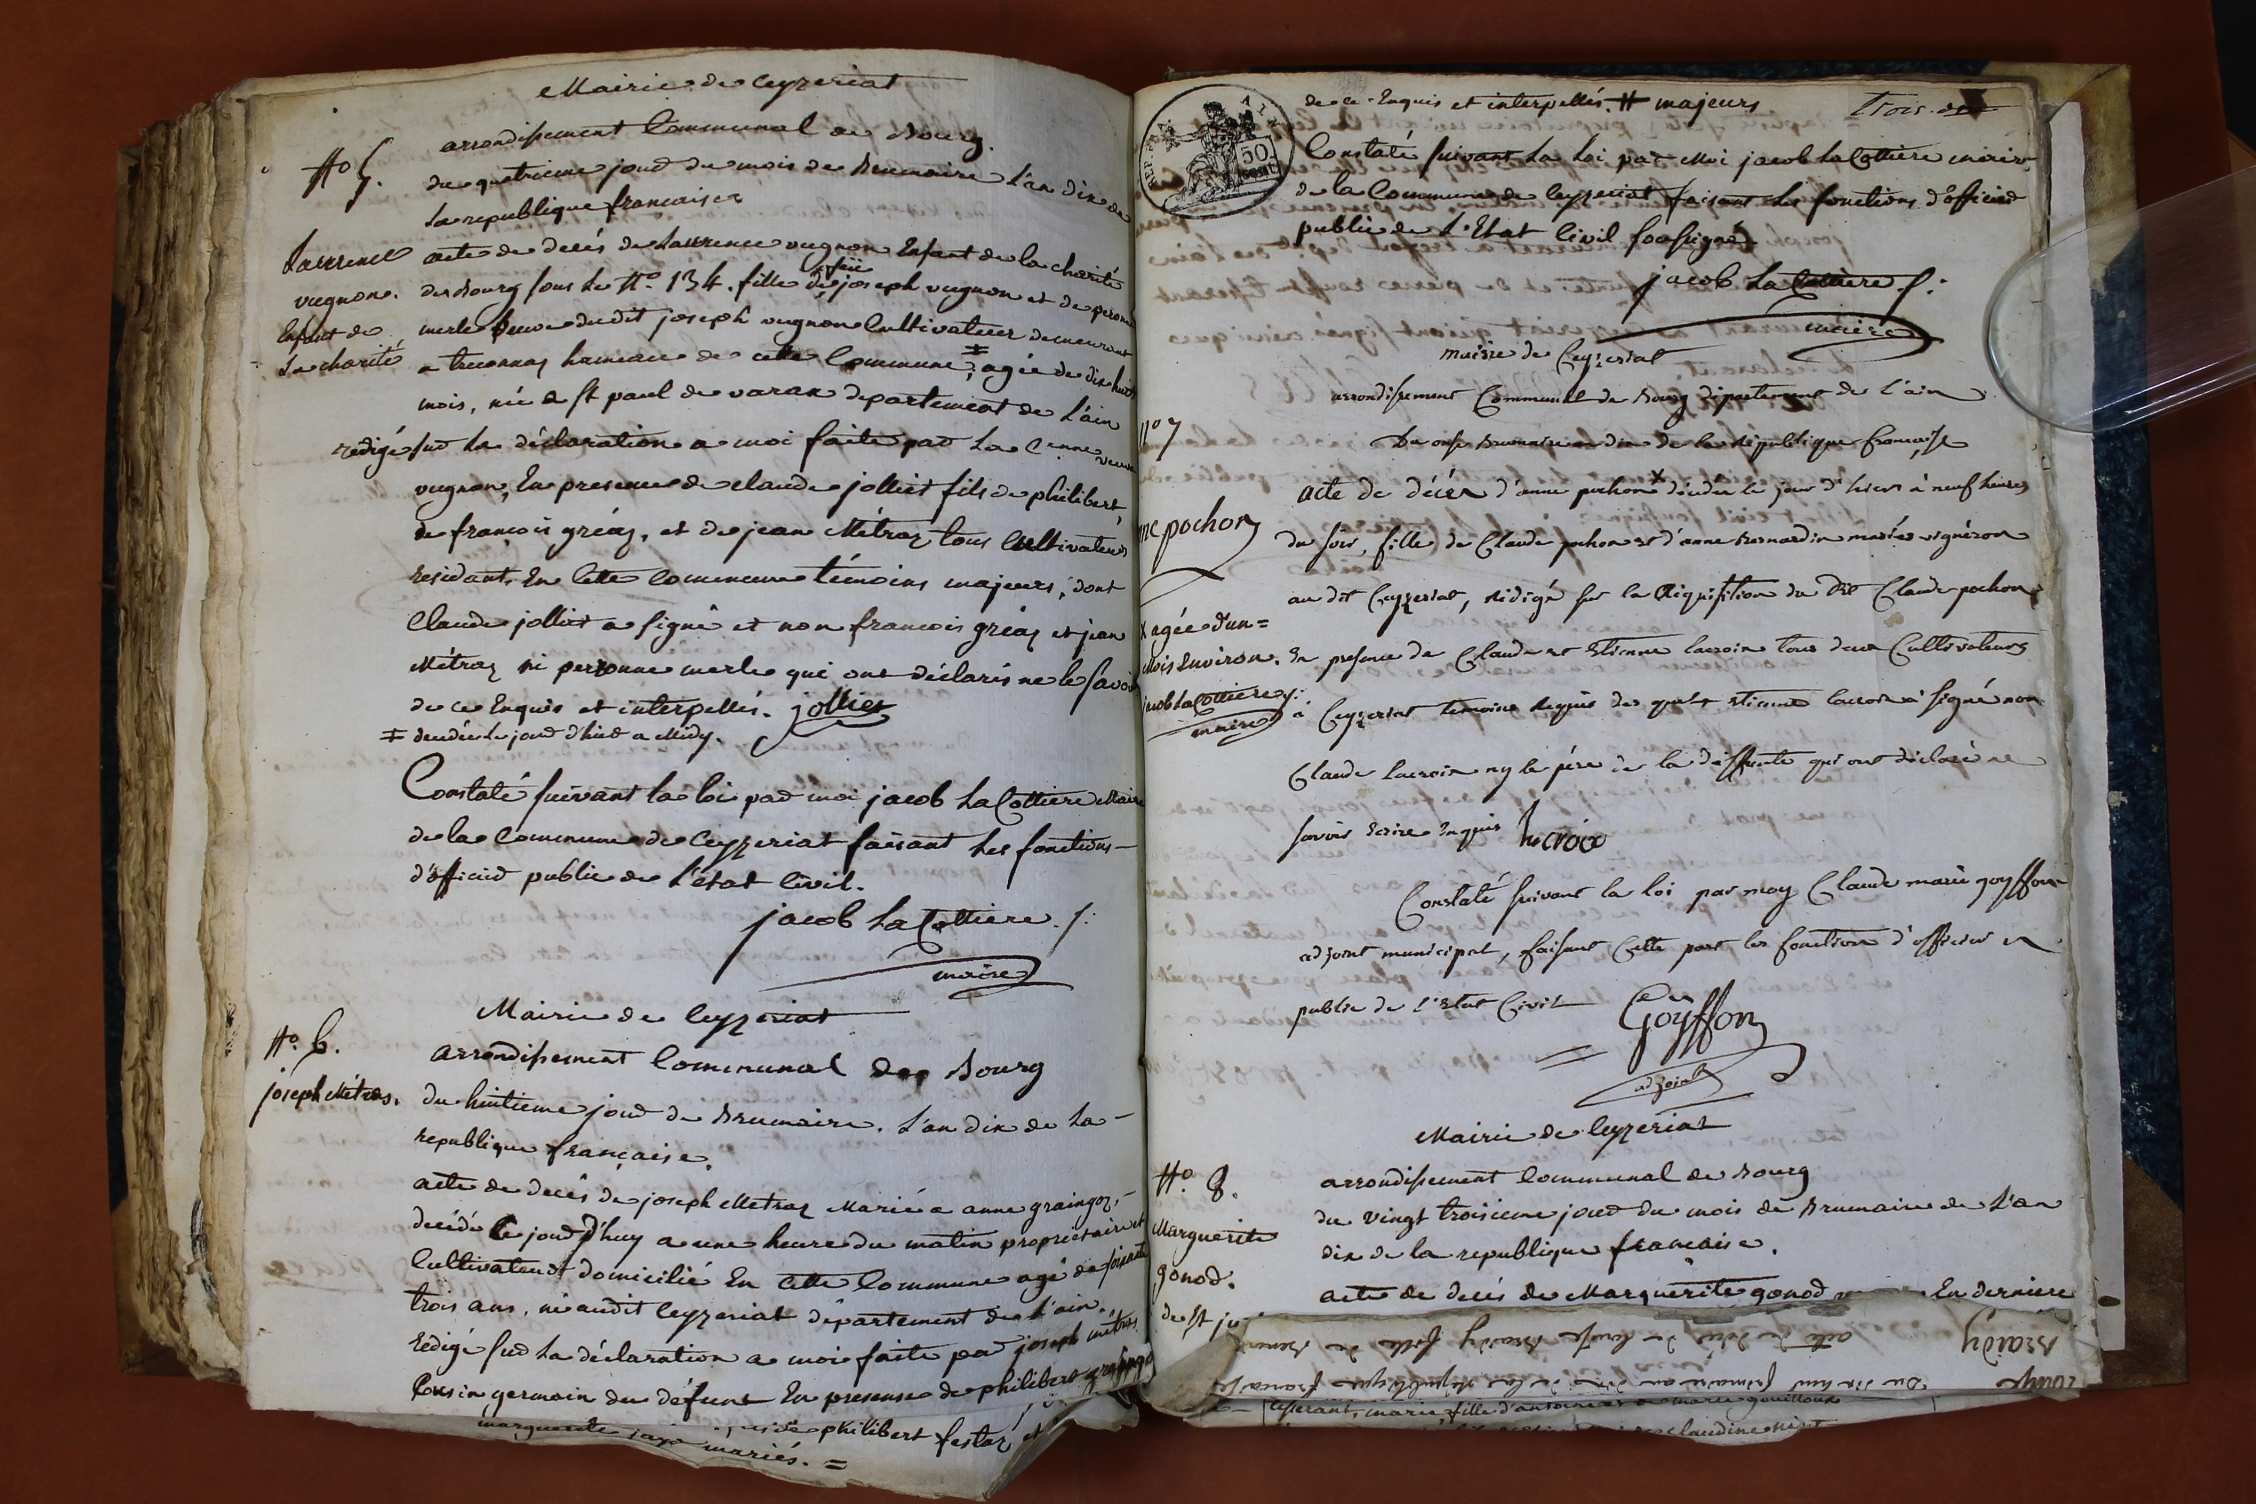 Mairie de Ceyzeriat
arrondissement Communal de Bourg.
No 5. du quatrieme jour du mois de Brumaire L'an dix de
La republique francaise
Laurence vugnon. Enfant de La charité
acte de decés de Laurence vugnon Enfant de la charité
de Bourg sous Le No. 134. fille de feu joseph vugnon et de peronne
merle veuve dudit joseph vugnon Cultivateur demeurant
a treconnaz hameau de cette Commune, ‡ agée de dix huit
mois, née a St paul de varax departement de L'ain
redigé sur La déclaration a moi faite par La Cenne veuve
vugnon, En presence de claude jolliet fils de philibert,
de francois gréaz, et de jean Métraz tous Cultivateurs
residants En Cette Commune témoins majeurs, dont
Claude jolliet a signé et non francois gréaz et jean
Métraz ni peronne merle qui ont déclarés ne le savoir
de ce Enquis et interpellés. jolliet
‡ decedée Le jour d'hier a Midy.
Constaté suivant la loi par moi jacob La Cottiere Maire
de la Commune de Ceyzeriat faisant Les fonctions
d'officier public de L'état Civil.
jacob La Cottiere
maire
Mairie de Ceyzeriat
No. 6. arrondissement Communal de Bourg
joseph Métras. du huitieme jour de Brumaire. L'an dix de La
republique française.
acte de decés de joseph Metraz Marié a anne graingoz,
decédé Ce jourd'huy a une heure du matin propriétaire et
Cultivateur domicilié En Cette Commune agé de soixante
trois ans, né audit Ceyzeriat département de L'ain.
redigé sur La déclaration a moi faite par joseph métras
Cousin germain du défunt En presence de philibert
philibert festaz et
marguerite mariés. =
de ce Enquis et interpellés. # majeurs
trois
Constaté suivant La Loi par Moi jacob La Cottiere maire
de la Commune de Ceyzeriat faisant Les fonctions d'officier
public de L'Etat Civil soussigné
jacob La Cottiere
maire
mairie de Ceyzeriat
arrondissement Communal de Bourg département de L'ain
No 7 Du onse Brumaire an dix de la république française
acte de décès d'anne pochon x décédée le jour d'hiers à neuf heures
ne pochon
du soir, fille de Claude pochon et d'anne Bernardin mariés vignéron
au dit Ceyzeriat, rédigé sur la Réquisition du dit Claude pochon
x agée d'un =
Mois Environ.
jacob La Cottiere
maire
En présence de Claude et Etienne Lacroix tous deux Cultivateurs
à Ceyzeriat temoins requis des quels Etienne Lacroix a signé non
Claude Lacroix ny le père de la deffunte qui ont déclaré ne
savoir Ecrire Enquis Lacroix
Constaté suivant la loi par moy Claude marie goyffon
adjoint municipal, faisant Cette part les fonction d'officier
public de L'Etat Civil Goyffon
adjoint
Mairie de Ceyzeriat
No. 8. arrondissement Communal de Bourg
Marguerite gonod.
du vingt troisieme jour du mois de Brumaire de L'an
dix de la republique francaise.
acte de decés de Marguerite gonod En derniere
de St
Brardy
acte de
fille d'antoine
marie gouilloux
claudine